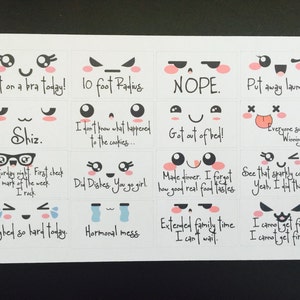 on a bra today!
10 foot Radius.
NOPE.
Put away
Shiz.
I don't know what happened
to the cookies...
Got out of bed!
Everyone
night. First check
mark of the week.
I rock.
Did Dishes. You go girl.
Made dinner. I forgot
how good real food tastes
See that sparkly
Yeah. I did
so hard today.
Hormonal mess.
Extended family time.
I can't wait.
I cannot
I cannot